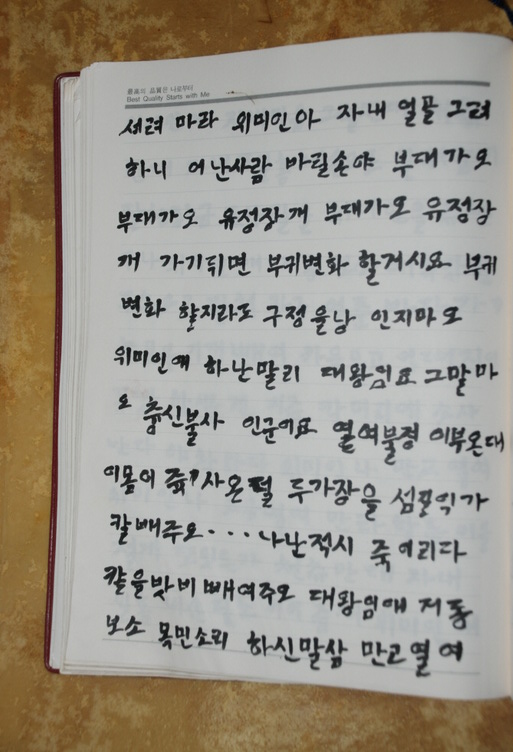 最高의 品質은 나로부터
Best Quality Starts with Me
세려 마라 위미인아 자내 얼골 그려
하니 어난사람 바릴손야 부대가오
부대가오 유정장개 부대가오 유정장
개 가기뒤면 부귀변화 할거시요 부귀
변화 할지라도 구정을낭 인지마오
위미인애 하난말리 대왕임요 그말마
오 츙신불사 인군이요 열여불경 이부온대
이몸이 죽 사온덜 두가장을 섬
칼빼주오・・・나난적시 죽어리다
칼을밧비 빼여주오 대왕임애 저동
보소 목민소리 하신말삼 만고열여